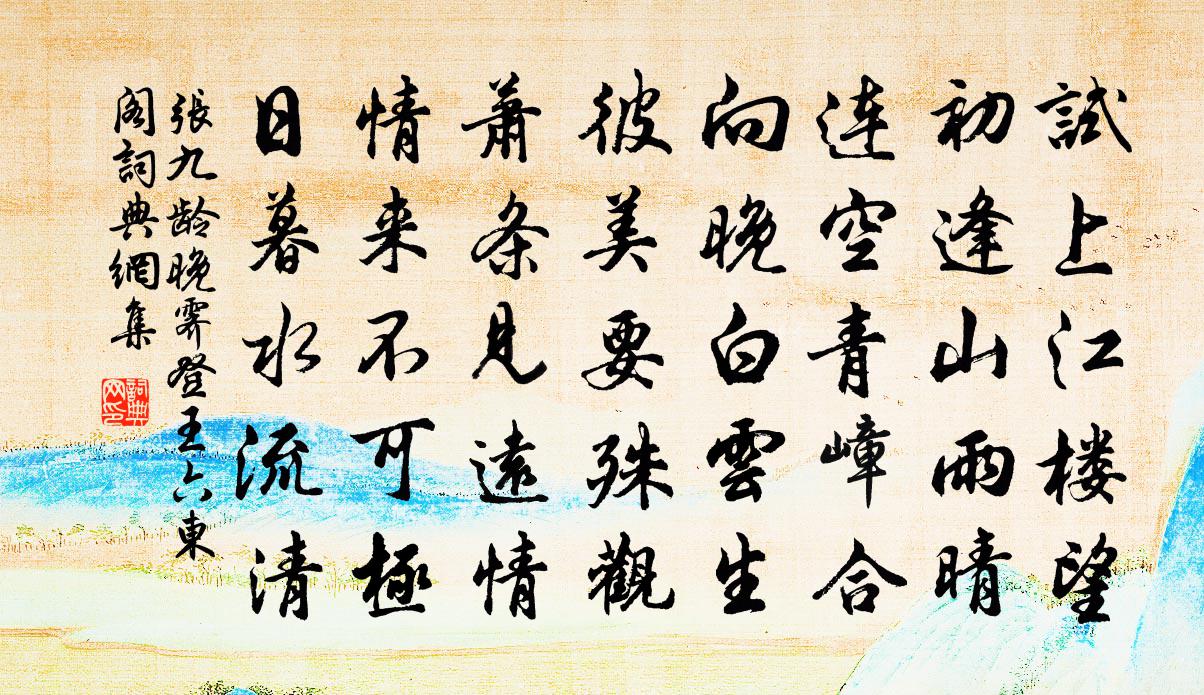 試上江楼望
初逢山雨晴
连空青嶂合
向晚白雲生
彼美要殊觀
蕭条見遠情
情来不可極
日暮水流清
張九龄晚霽登王六東
阁詞典網集
詞典
网印